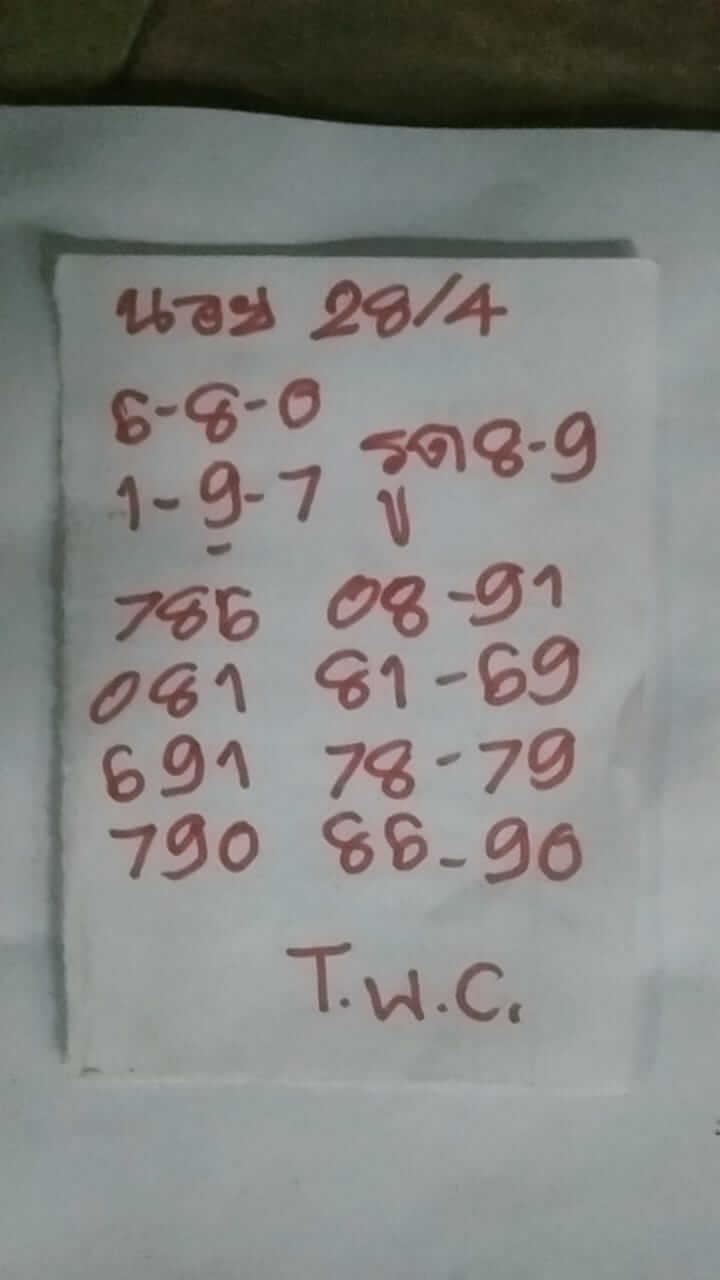 นอย 28/4
6-8-0
รูด 8-9
1-9-7
786 08-91
081 81-69
691 78-79
790 86-90
T.W.C.